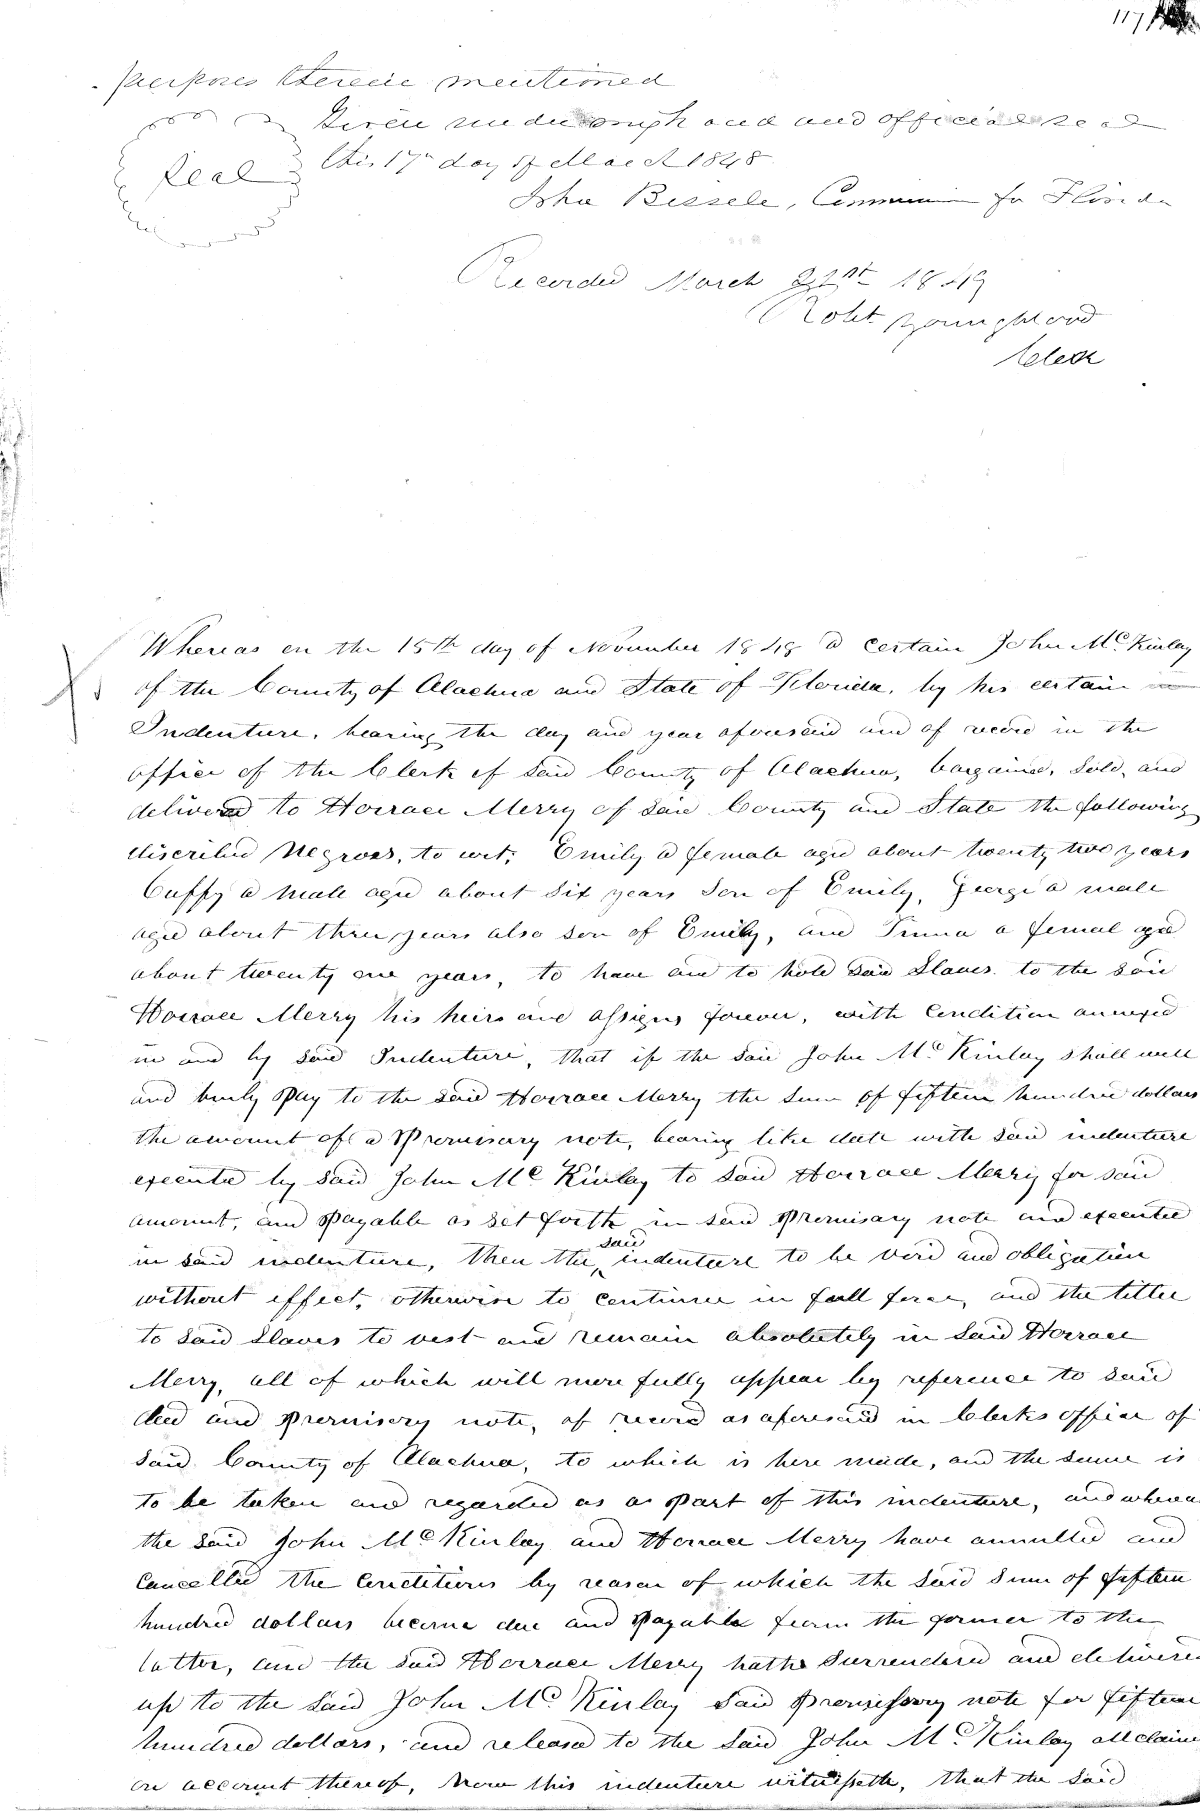 117
purposes therein mentioned
Given under my hand and official seal
Seal
this 17th day of March 1848
John Bissele, Commissioner for Florida
Recorded March 21st 1849
Robt Youngblood
Clerk
Whereas on the 15th day of November 1848 a certain John McKinlay
of the County of Alachua and State of Florida, by his certain
Indenture, bearing the day and year aforesaid and of record in the
office of the Clerk of said County of Alachua, bargained, sold, and
delivered to Horrace Merry of said County and State the following
discribed Negroes, to wit; Emily a female aged about twenty two years
Cuffy a male aged about six years son of Emily, George a male
aged about three years also son of Emily, and a femal aged
about twenty one years, to have and to hold said Slaves to the said
Horrace Merry his heirs and assigns forever, with Condition annexed
in and by said Indenture, that if the said John McKinlay shall well
and truly pay to the said Horrace Merry the sum of fifteen hundred dollars
the amount of a Promissary note, bearing like date with said indenture
executed by said John McKinlay to said Horrace Merry for said
amount, and payable as set forth in said Promisary note and executed
in said indenture, then the said indenture to be void and obligation
without effect, otherwise to continue in full force, and the titler
to said Slaves to vest and remain absolutely in said Horrace
Merry, all of which will more fully appear by reference to said
deed and promisery note, of record as aforesaid in Clerks office of
said County of Alachua, to which is here made, and the same is
to be taken and regarded as a part of this indenture, and whereas
the said John McKinlay and Horrace Merry have annulled and
Cancelled the Conditions by reason of which the said Sum of fifteen
hundred dollars become due and payable from the former to the
latter, and the said Horrace Merry hath surrendered and delivered
up to the said John McKinlay said promissory note for fifteen
hundred dollars, and released to the said John McKinlay all claim
on account thereof, Now this indenture witnesseth, that the said